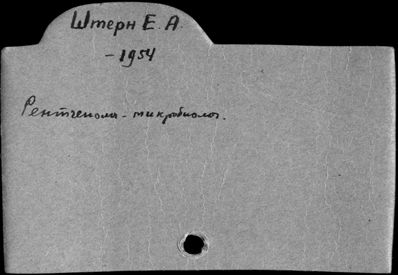 Штерн Е. А.
- 1954
Рентгенолог - микробиолог.